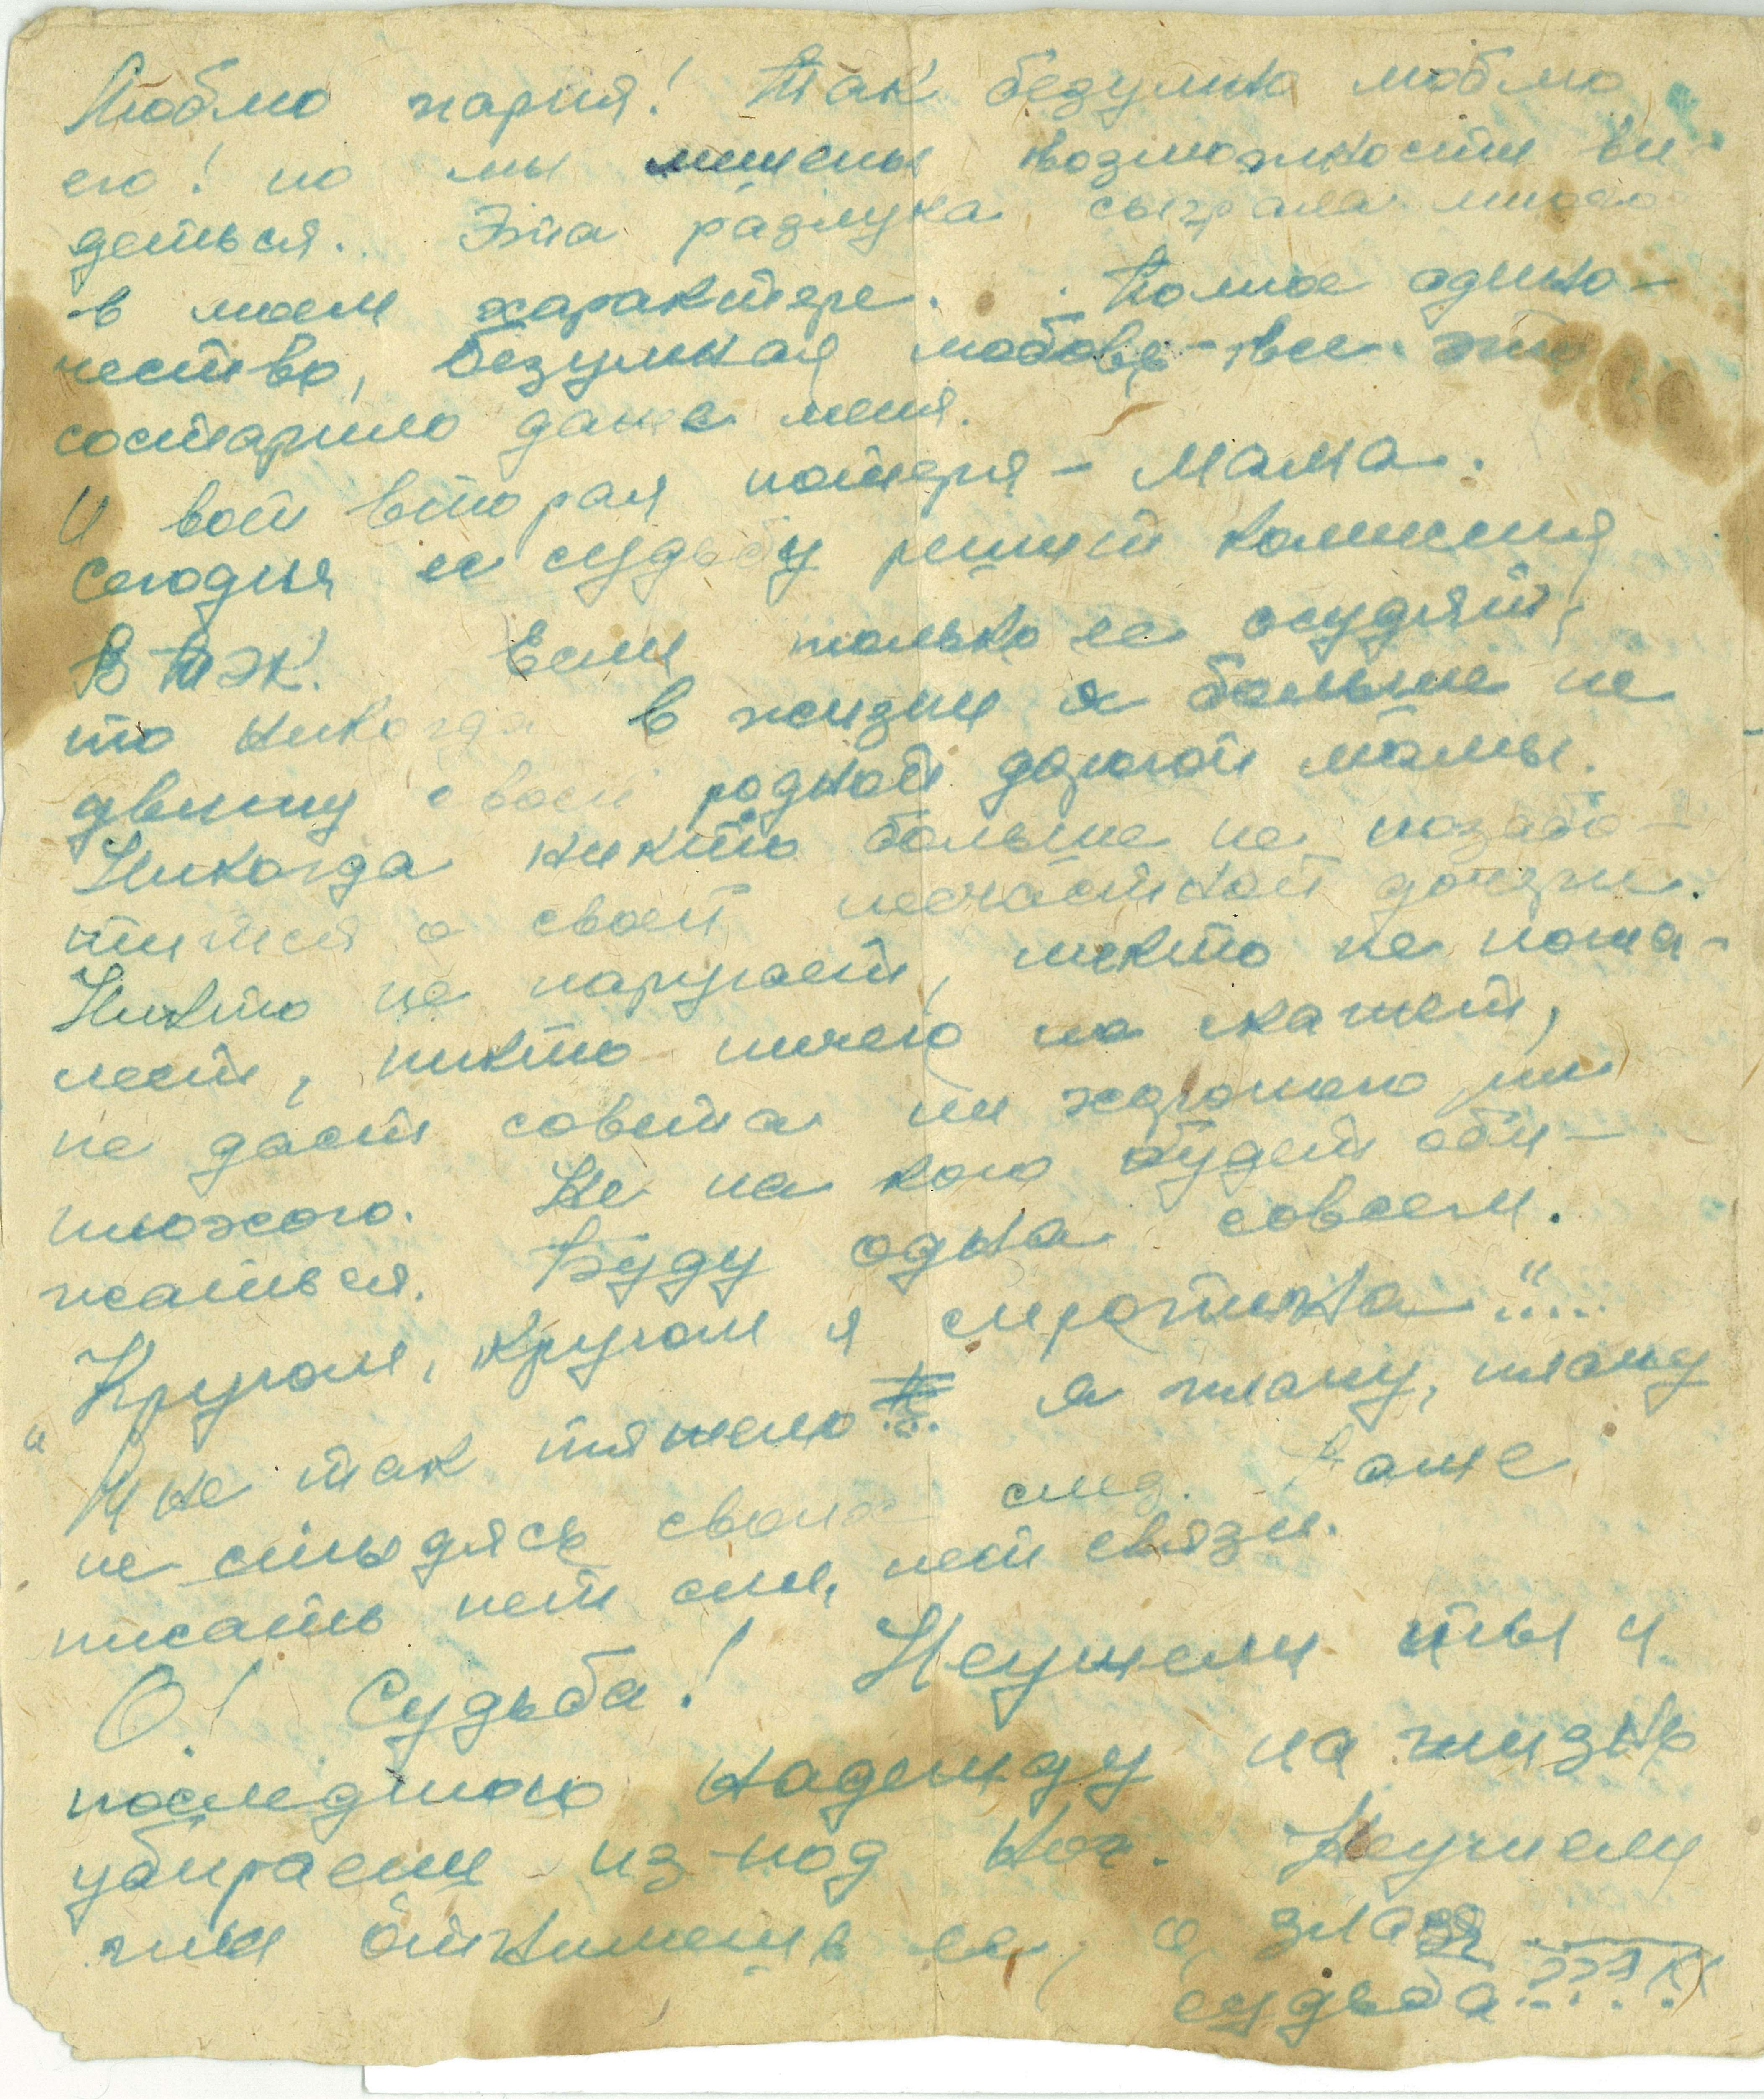 Люблю парня! Так безумно люблю
его! но мы лишены возможности ви-
деться. Эта разлука сыграла много
в моем характере. Полное одино-
чество, безумная любовь - все это
состарило даже меня.
И вот вторая потеря - Мама.
Сегодня ее судьбу решит комиссия
ВТЭК. Если только ее осудят,
то никогда в жизни я больше не
увижу своей родной дорогой мамы.
Никогда никто больше не позабо-
тится о своей несчастной дочери.
Никто не наругает, никто не пожа-
леет, никто ничего не скажет,
не даст совета ни хорошего ни
плохого. Не на кого будет оби-
жаться. Буду одна совсем.
"Кругом, кругом я сиротинка"....
Мне так тяжело я плачу, плачу
не стыдясь своих слез. Даже
писать нет сил, нет связи.
О! Судьба! Неужели ты и
последнюю надежду на жизнь
убираешь из-под ног. Неужели
ты отнимешь ее, о, злая
судьба???!!